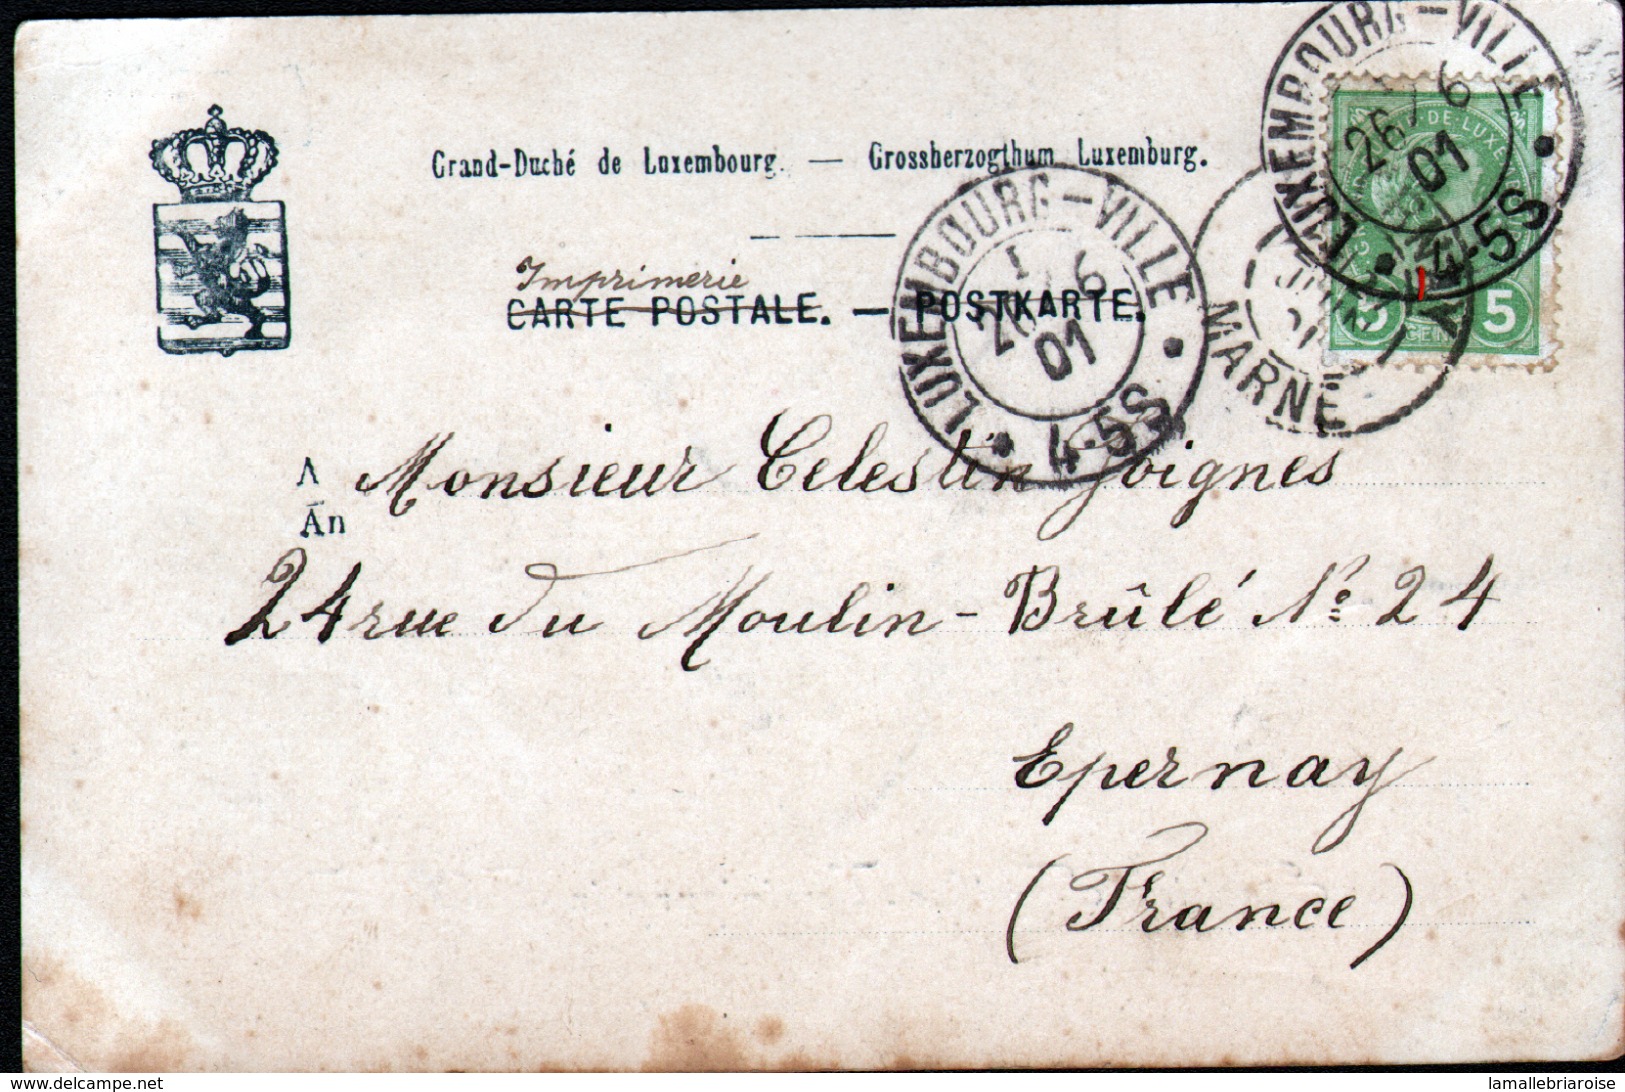 Grand-Duché de Luxembourg. — Grossherzogthum Luxemburg.
Imprimerie
CARTE POSTALE. — POSTKARTE.
LUXEMBOURG-VILLE
26 6
01
4-5S
LUXEMBOURG-VILLE
26 6
01
4-5S
MARNE
5 5
A Monsieur Celestin Joignes
An
24 rue du Moulin-Brûlé Nº 24
Epernay
(France)
delcampe.net
lamallebriaroise